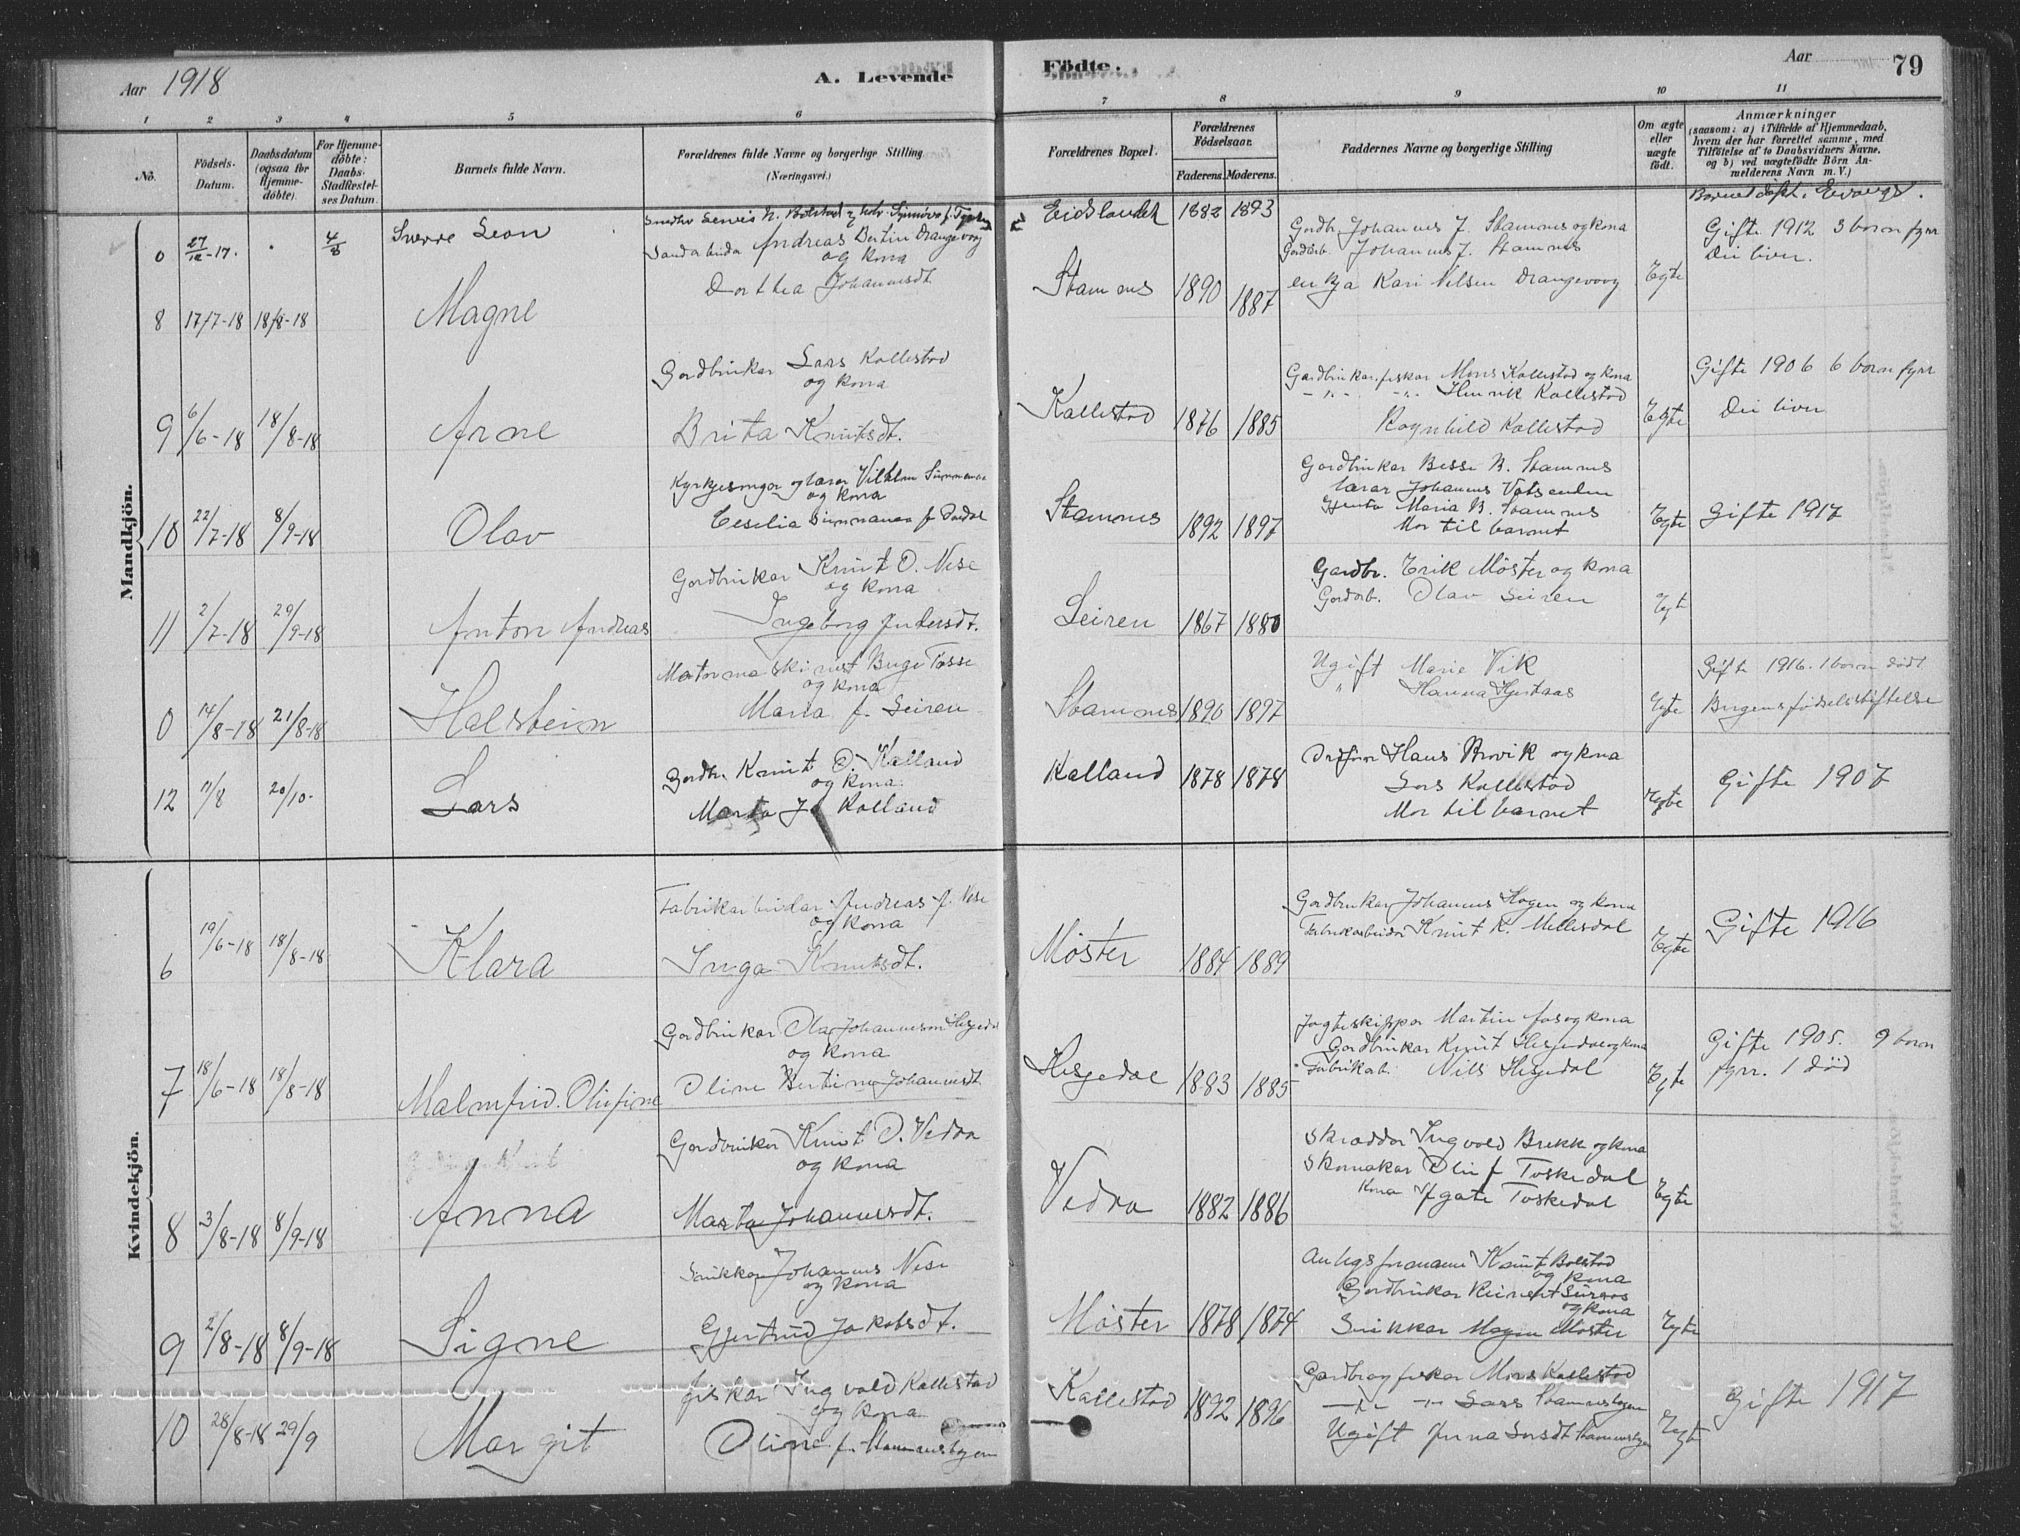 Aar 1918
A. Levende
Födte.
Aar
79
1 2 3 4 5 6 7 8 9 10 11
No.
Födsels-Datum.
Daabsdatum (ogsaa for Hjemmedöbte).
For Hjemmedöbte: Daabs-Stadfæstelses Datum.
Barnets fulde Navn.
Forældrenes fulde Navne og borgerlige Stilling (Næringsvei.)
Forældrenes Bopæl.
Forældrenes Födselsaar.
Faderens. Moderens.
Faddernes Navne og borgerlige Stilling
Om ægte eller uægte födt.
Anmærkninger
(saasom: a) i Tilfælde af Hjemmedaab, hvem der har forrettet samme, med Tilföielse af to Daabsvidners Navne, og b) ved uægtefödte Börn Anmelderens Navn m. V.)
Mandkjön.
0 27/12-17. 4/8 Sverre Leon
Bolstad
Eidslandet 1882 1893
Gardbr. Johannes J. Stamnes og kona
8 17/7-18 18/8-18 Magne
Andreas Bertin Drangevaag
og kona
Dorthea Johannesdt
Stamnes 1890 1887
Johannes J. Stamnes
enkja Kari Nilsen Drangevaag
Egte
Gifte 1912 3 born fyrr
Dei liver.
9 6/6-18 18/8-18 Arne
Gardbrukar Lars Kallestad
og kona
Brita Knutsdt.
Kallestad 1876 1885
Gardbrukar, fiskar Mons Kallestad og kona
Henrik Kallestad
Ragnhild Kallestad
Egte
Gifte 1906 6 born fyrr
Dei liver
10 22/7-18 8/9-18 Olav
Kyrkjesongar og lærar Vilhelm
og kona
Cesilia
Stamnes 1892 1897
Gardbrukar B. Stamnes
lærar Johannes
Maria B. Stamnes
Mor til barnet
Egte
Gifte 1917
11 2/7-18 29/9-18 Anton Andreas
Gardbrukar Knut O. Nese
og kona
Ingeborg Andersdt.
Leiren 1867 1880
Gardbr. Erik Møster og kona
Gardarb. Olav Leiren
Egt
0 14/8-18 21/8-18 Halstein
og kona
Maria f. Leiren
Stamnes 1890 1897
Ugift Marie Vik
Hanna
Egte
Gifte 1916. 1 born dødt
fødselsstiftelse
12 11/8 20/10- Lars
Gardbr. Knut O. Kalland
og kona
Marta Kalland
Kalland 1878 1878
Hans og kona
Lars Kallestad
Mor til barnet
Egte
Gifte 1907
Kvindekjön.
6 19/6-18 18/8-18 Klara
Fabrikarbeidar Andreas Nese
og kona
Inga Knutsdt.
Møster 1884 1889
Gardbrukar Johannes og kona
Fabrikarbeidar Knut K.
Egte
Gifte 1916
7 18/6-18 18/8-18 Malmfrid Olufine
Gardbrukar Ola Johannesson Hesjedal
og kona
Oline Bertine Johannesdt
Hesjedal 1883 1885
Jagteskippar Martin og kona
Gardbrukar Knut Hesjedal og kona
Fabrikarb. Nils Hesjedal
Egte
Gifte 1905. 9 born
fyrr. 1 død
8 3/8-18 8/9-18 Anna
Gardbrukar Knut O. Vedra
og kona
Marta Johannesdt.
Vedra 1882 1886
Skræddar Ingvald Brekk og kona
Skomakar Toskedal
kona Toskedal
Egte
9 2/8-18 8/9-18 Signe
Snikkar Johannes Nese
og kona
Gjertrud Jakobsdt.
Møster 1878 1874
Knut Bolstad
og kona
Gardbrukar
og kona
Snikkar Møster
Egte
10 28/8-18 29/9 Margit
fiskar Ingvald Kallestad
og kona
Oline f. Stamnesbyen
Kallestad 1892 1896
Gardbr og fiskar Mons Kallestad
Lars Stamnesbyen
Ugift Anna Larsdt Stamnesbyen
Egte
Gifte 1917